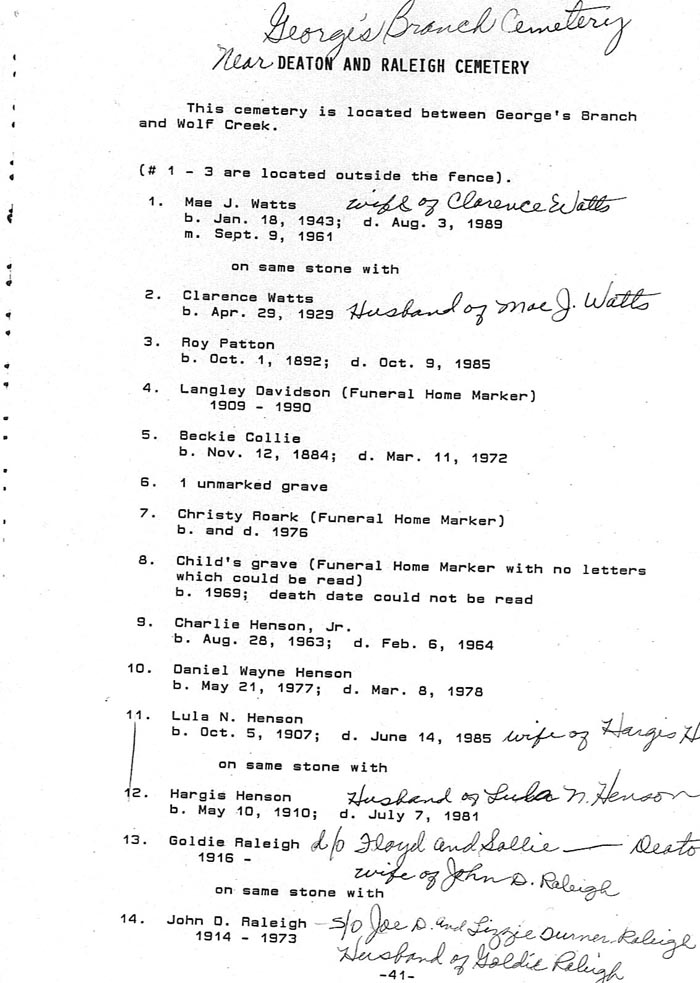 George's Branch Cemetery
Near DEATON AND RALEIGH CEMETERY
This cemetery is located between George's Branch
and Wolf Creek.
(# 1 - 3 are located outside the fence).
1. Mae J. Watts wife of Clarence Watts
b. Jan. 18, 1943; d. Aug. 3, 1989
m. Sept. 9, 1961
on same stone with
2. Clarence Watts
b. Apr. 29, 1929 Husband of Mae J. Watts
3. Roy Patton
b. Oct. 1, 1892; d. Oct. 9, 1985
4. Langley Davidson (Funeral Home Marker)
1909 - 1990
5. Beckie Collie
b. Nov. 12, 1884; d. Mar. 11, 1972
6. 1 unmarked grave
7. Christy Roark (Funeral Home Marker)
b. and d. 1976
8. Child's grave (Funeral Home Marker with no letters
which could be read)
b. 1969; death date could not be read
9. Charlie Henson, Jr.
b. Aug. 28, 1963; d. Feb. 6, 1964
10. Daniel Wayne Henson
b. May 21, 1977; d. Mar. 8, 1978
11. Lula N. Henson
b. Oct. 5, 1907; d. June 14, 1985 wife of Hargis H
on same stone with
12. Hargis Henson Husband of Lula N. Henson
b. May 10, 1910; d. July 7, 1981
13. Goldie Raleigh d/o Floyd and Sallie — Deato
1916 - wife of John D. Raleigh
on same stone with
14. John D. Raleigh - S/O Joe D. and Lizzie Turner Raleigh
1914 - 1973 Husband of Goldie Raleigh
-41-